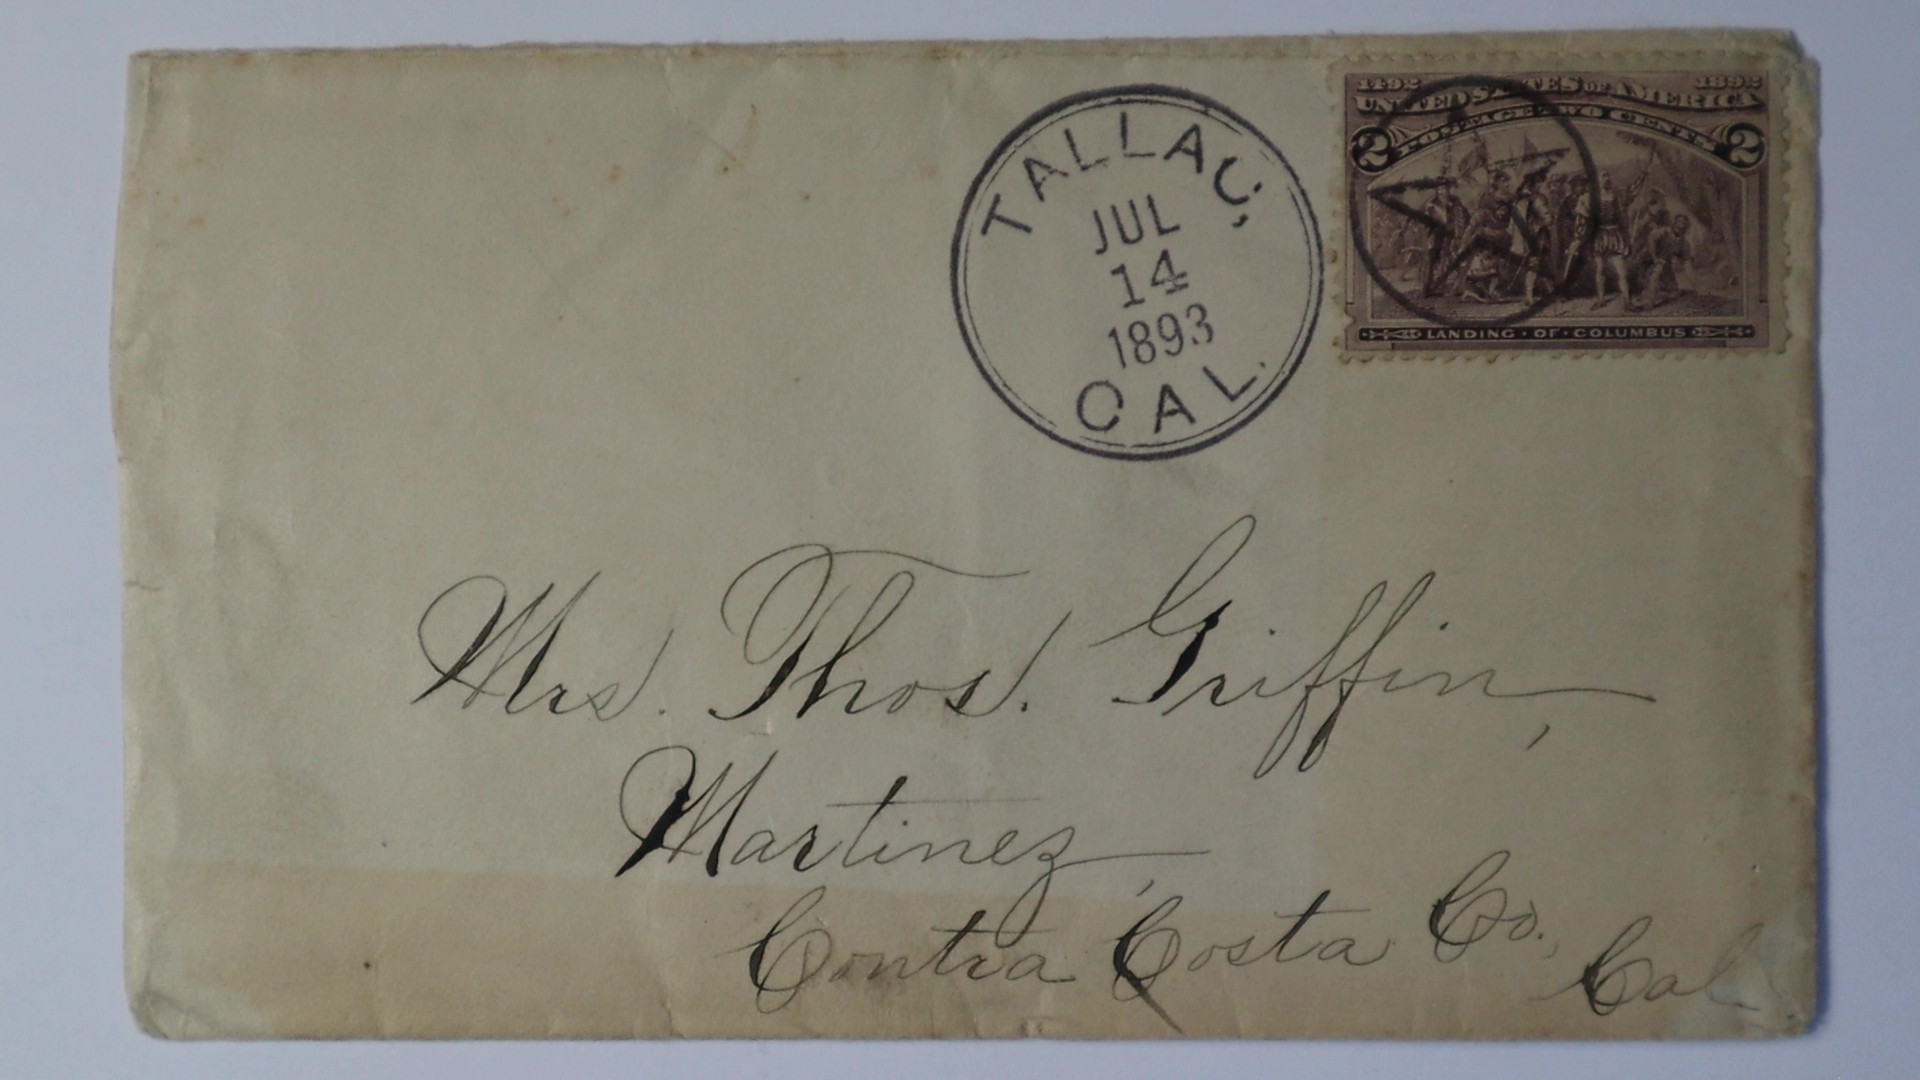 TALLAC,
JUL
14
1893
CAL.
1492 1892
UNITED STATES OF AMERICA
POSTAGE TWO CENTS
2 2
LANDING · OF · COLUMBUS
Mrs. Thos. Griffin,
Martinez,
Contra Costa Co.,
Cal